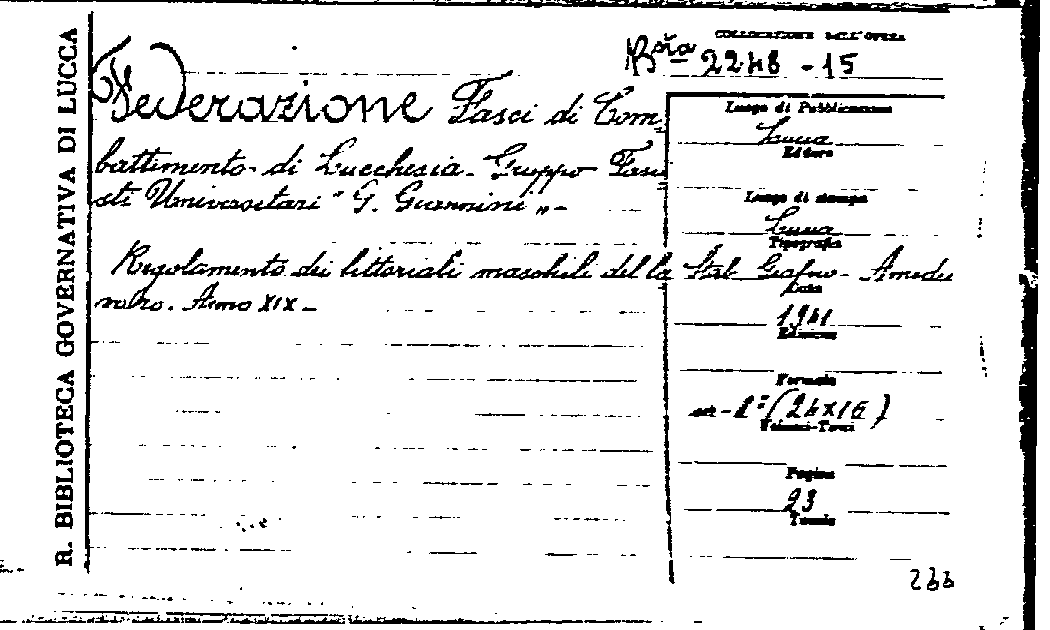 R. BIBLIOTECA GOVERNATIVA DI LUCCA
COLLOCAZIONE DELL'OPERA
Bsta 2248 - 15
Federazione Fasci di Com=
battimento di Lucchesia - Gruppo Fasci=
sti Universitari "G. Giannini" -
Regolamento dei littoriali maschili del la
voro. Anno XIX -
Luogo di Pubblicazione
Lucca
Editore
Luogo di stampa
Lucca
Tipografia
Stab. Grafico - Amedei
Data
1941
Edizione
Formato
8° (24x16)
Volumi-Tomi
Pagine
23
Tavole